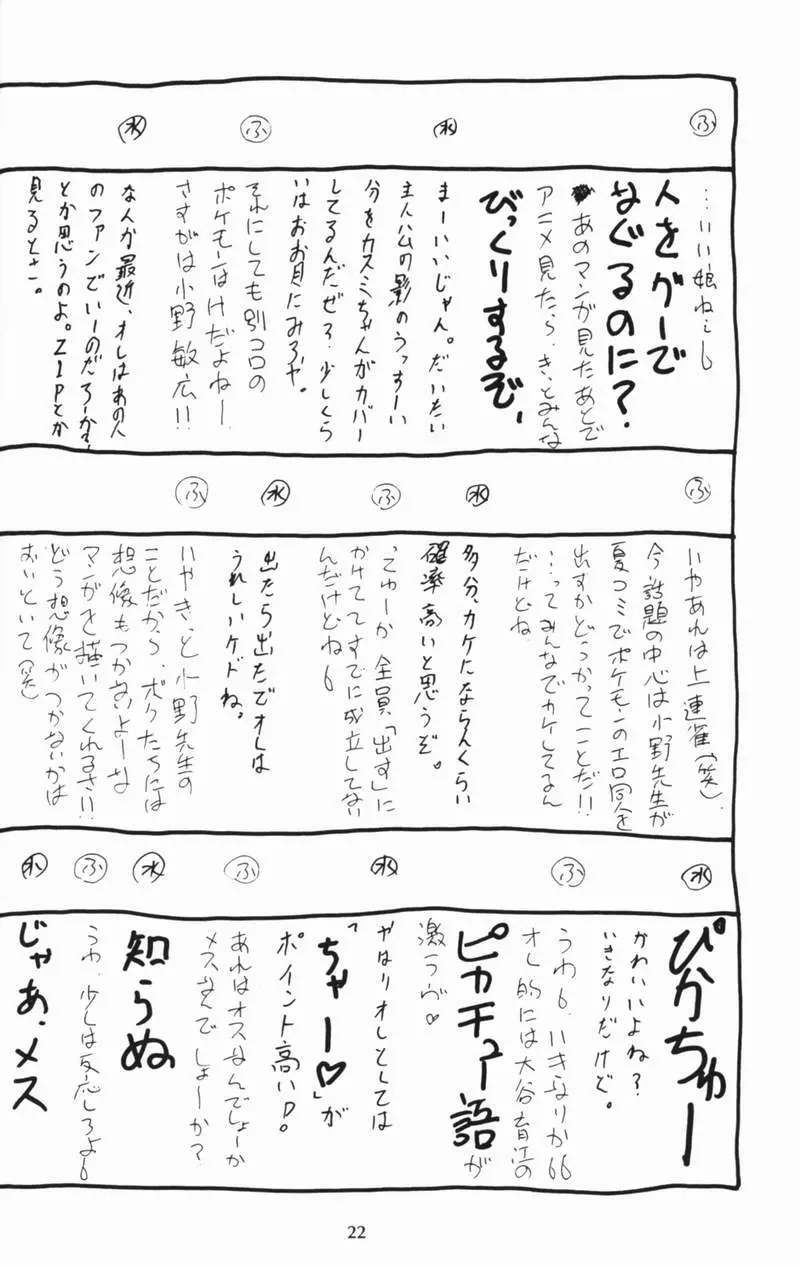 ふ
…いい娘ねぇ6
水
人をグーで
なぐるのに?
ふ
あのマンガ見たあとで
アニメ見たら、きっとみんな
びっくりするぞ。
水
まーいいじゃん。だいたい
主人公の影のうっすーい
分をカスミちゃんがカバー
してるんだぜろ、少しくら
いはおお目にみろや。
ふ
それにしても別コロの
ポケモンはけだよねー
さすがは小野敏広!!
水
な人が最近、オレはあの人
のファンでいーのだろーか…
とか思うのよ。ZIPとか
見るとさー。
ふ
いやあれは上連雀(笑)
今話題の中心は小野先生が
夏コミでポケモンのエロ同人を
出すかどうかってことだ!!
…ってみんなでカケしてるん
だけどね
水
多分、カケにならんくらい
確率高いと思うぞ。
ふ
ってゆーか全員「出す」に
かけててすでに成立してない
んだけどね6
水
出たら出たでオレは
うれしいケドね。
ふ
いやきっと小野先生の
ことだから、ボクたちには
想像もつかないよーな
マンガを描いてくれるさ!!
どう想像がつかないかは
おいといて(笑)
水
ぴかちゅー
かわいいよね?
いきなりだけど。
ふ
うわ6、いきなりか66
オレ的には大谷育江の
ピカチュー語が
激ラヴ♡
水
やはりオレとしては
「ちゃー♡」が
ポイント高いD。
ふ
あれはオスなんでしょーか
メスなんでしょーか?
水
知らぬ
ふ
うわ、少しは反応しろよ6
水
じゃあ、メス
22